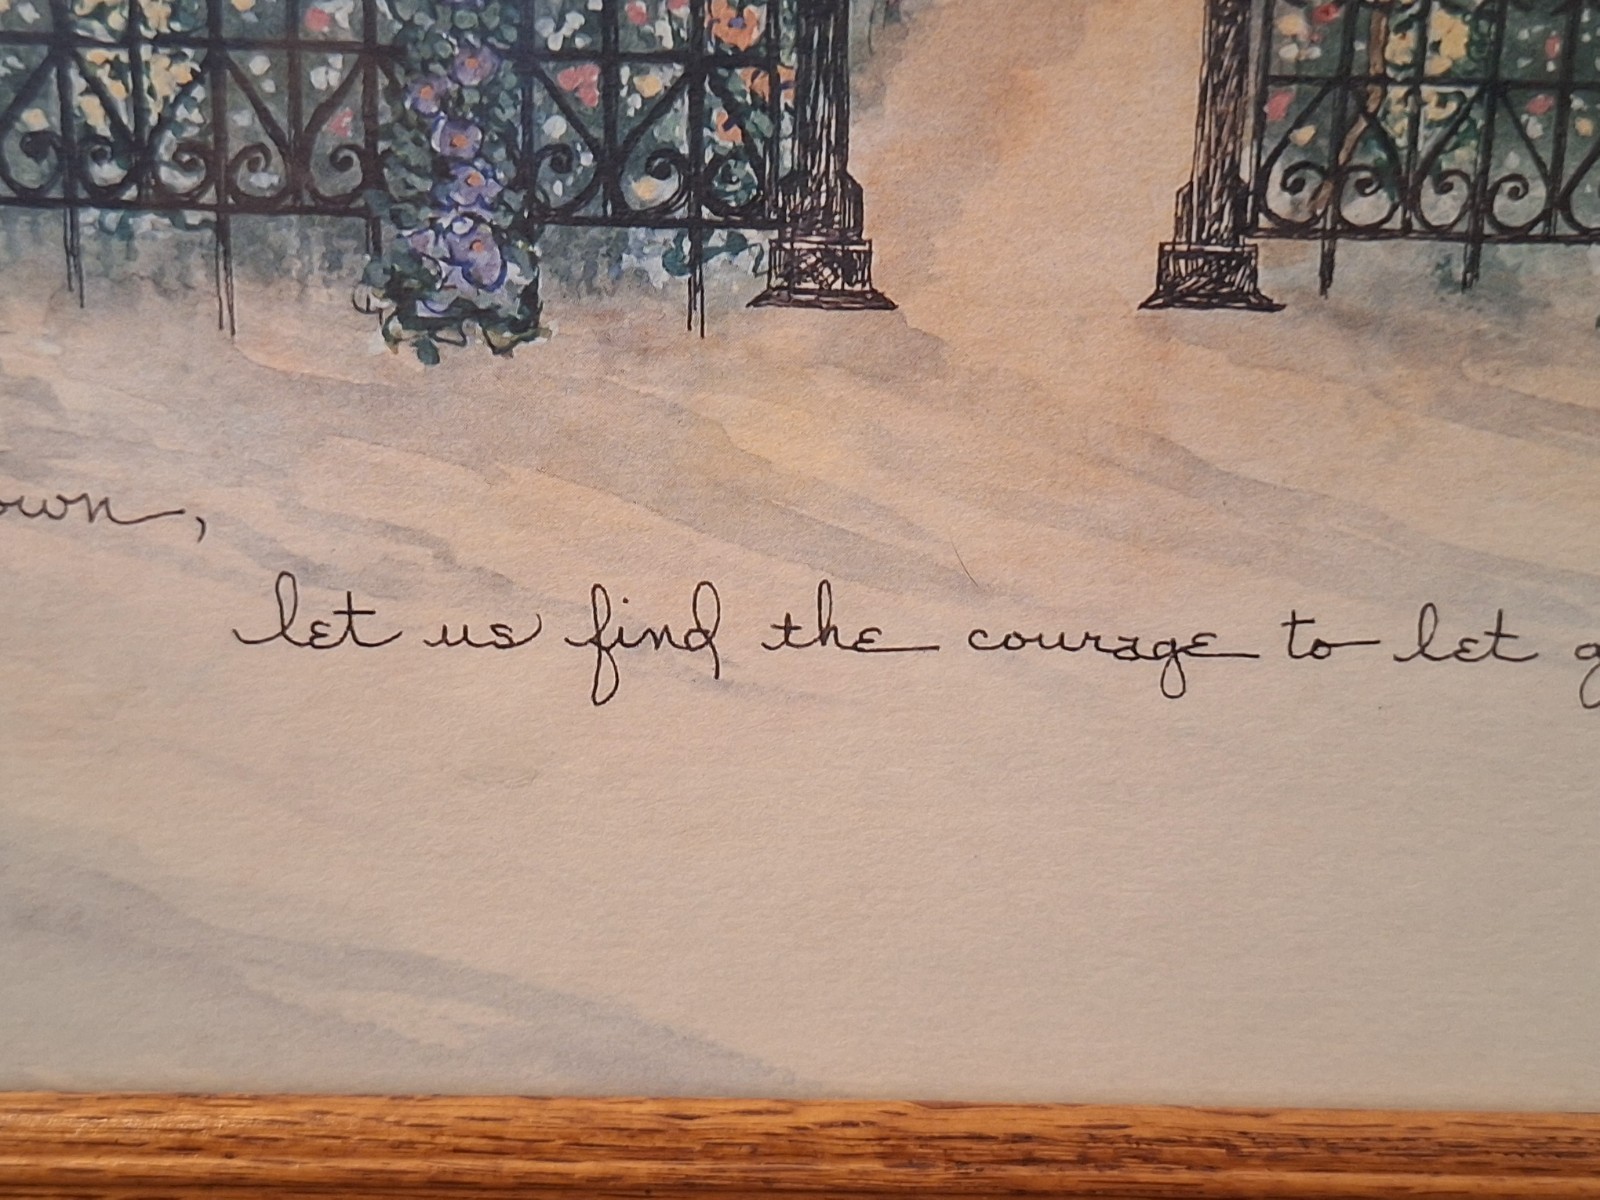 own,
let us find the courage to let g